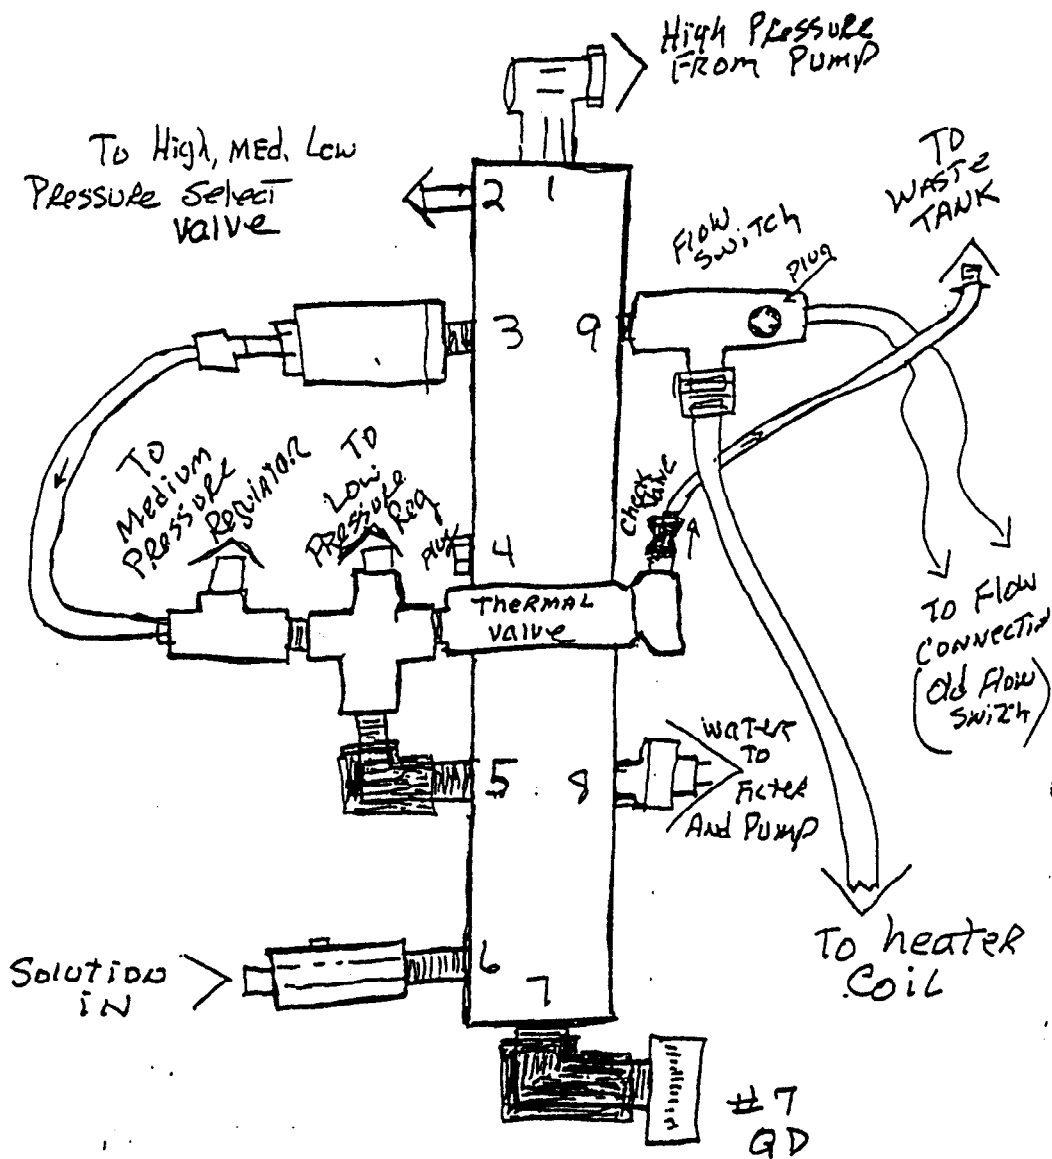 High Pressure
From Pump
To High, Med. Low
Pressure Select
Valve
To
Waste
Tank
2
1
Flow
Switch
Plug
3
9
To
Medium
Pressure
Regulator
To
Low
Pressure
Reg
Plug
4
Check
Valve
Thermal
Valve
To Flow
Connectin
(Old Flow
Switch)
5
8
Water
To
Filter
And Pump
Solution
in
6
7
To heater
Coil
#7
QD